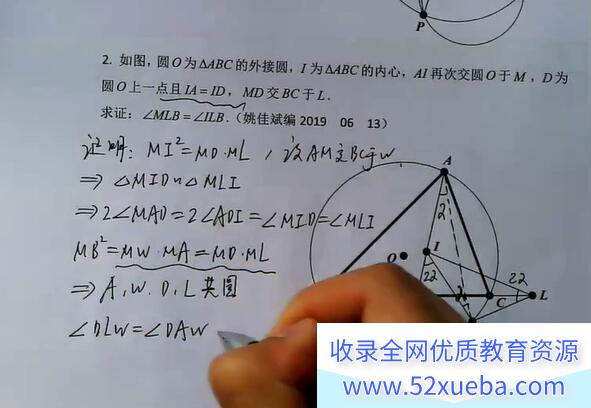 P
2. 如图，圆O为ΔABC的外接圆，I为ΔABC的内心，AI再次交圆O于M，D为
圆O上一点且IA=ID，MD交BC于L.
求证：∠MLB=∠ILB.（姚佳斌编2019 06 13）
证明：MI²=MD·ML，设AM交BC于W
⇒ △MID∽△MLI
⇒ 2∠MAD=2∠ADI=∠MID=∠MLI
MB²=MW·MA=MD·ML
⇒ A,W.D,L共圆
∠DLW=∠DAW
A
2
I
O
22
22
C
L
收录全网优质教育资源
www.52xueba.com